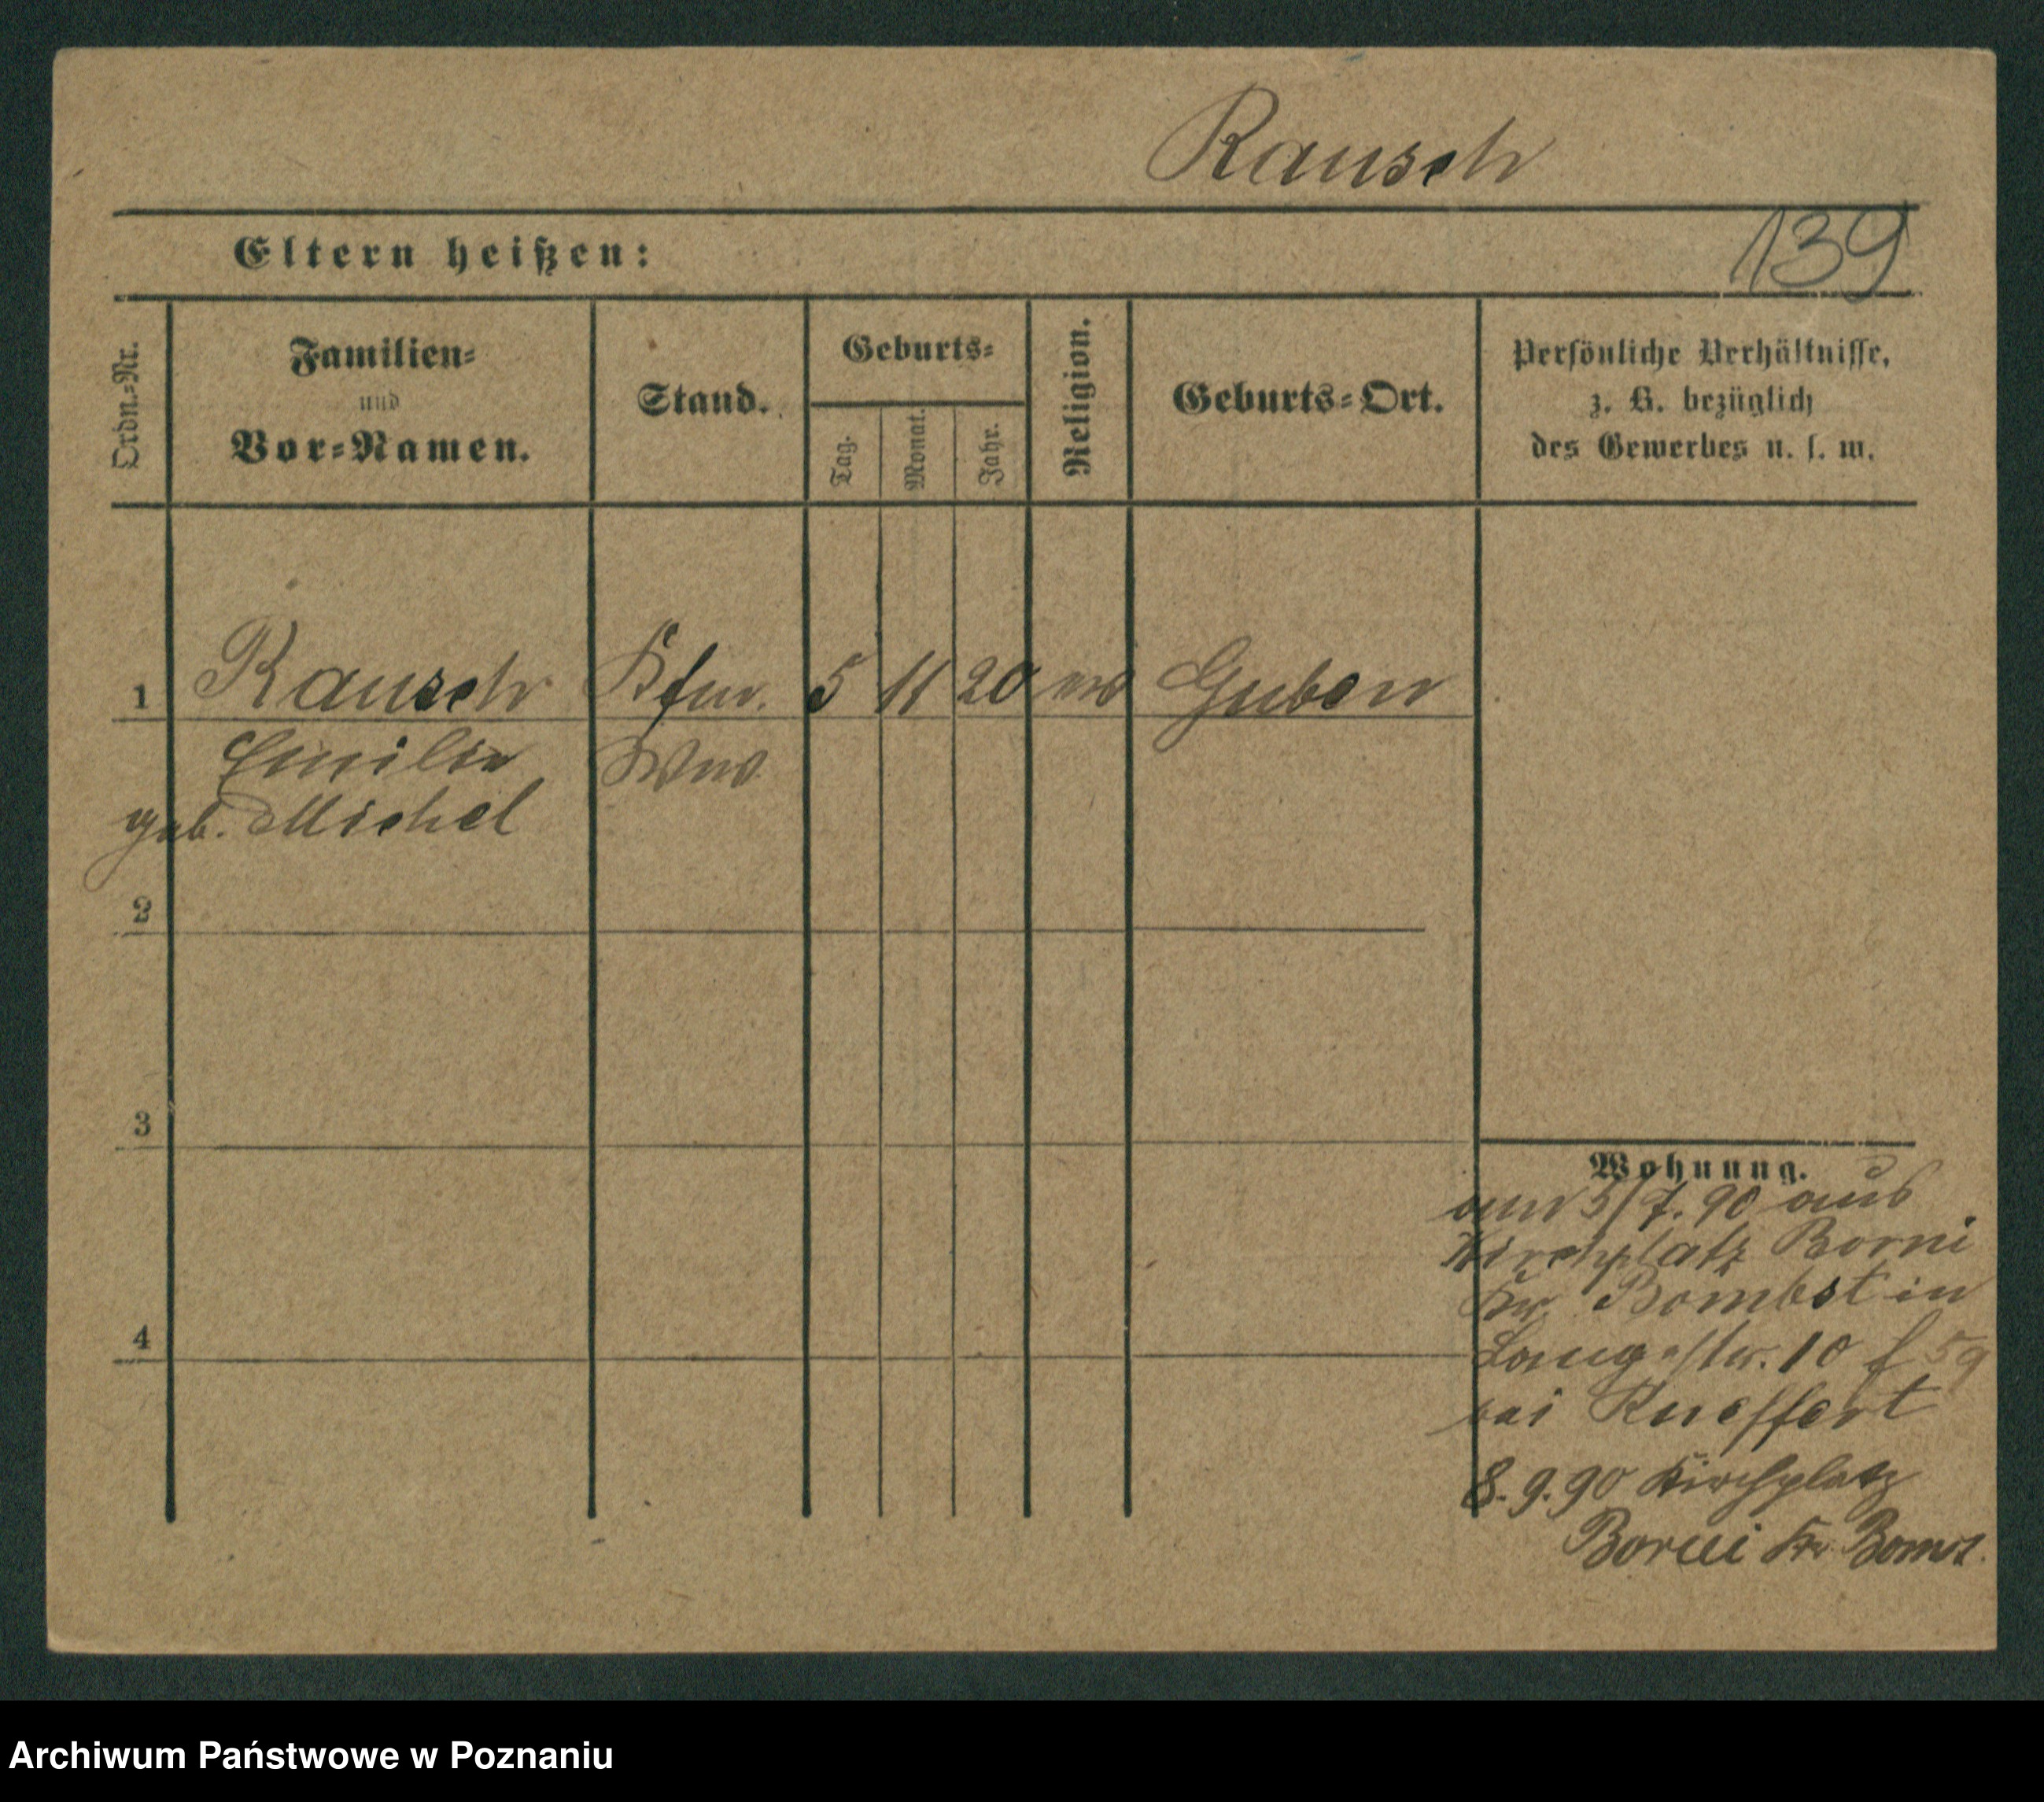 Rausch
139
Eltern heißen:
Ordn.-Nr.
Familien-
und
Vor-Namen.
Stand.
Geburts-
Tag.
Monat.
Jahr.
Religion.
Geburts-Ort.
Persönliche Verhältnisse,
z. B. bezüglich
des Gewerbes u. s. w.
1 Rausch Kfm. 5 11 20 Guben
Emilie Wwe
geb. Michel
2
3
4
Wohnung.
am 5/7. 90 aus
Kirchplatz Borni
Kr. Bombst in
Langestr. 10 f 59
bei Kneffert
8. 9. 90 Kirchplatz
Borui Kr. Bomst.
Archiwum Państwowe w Poznaniu